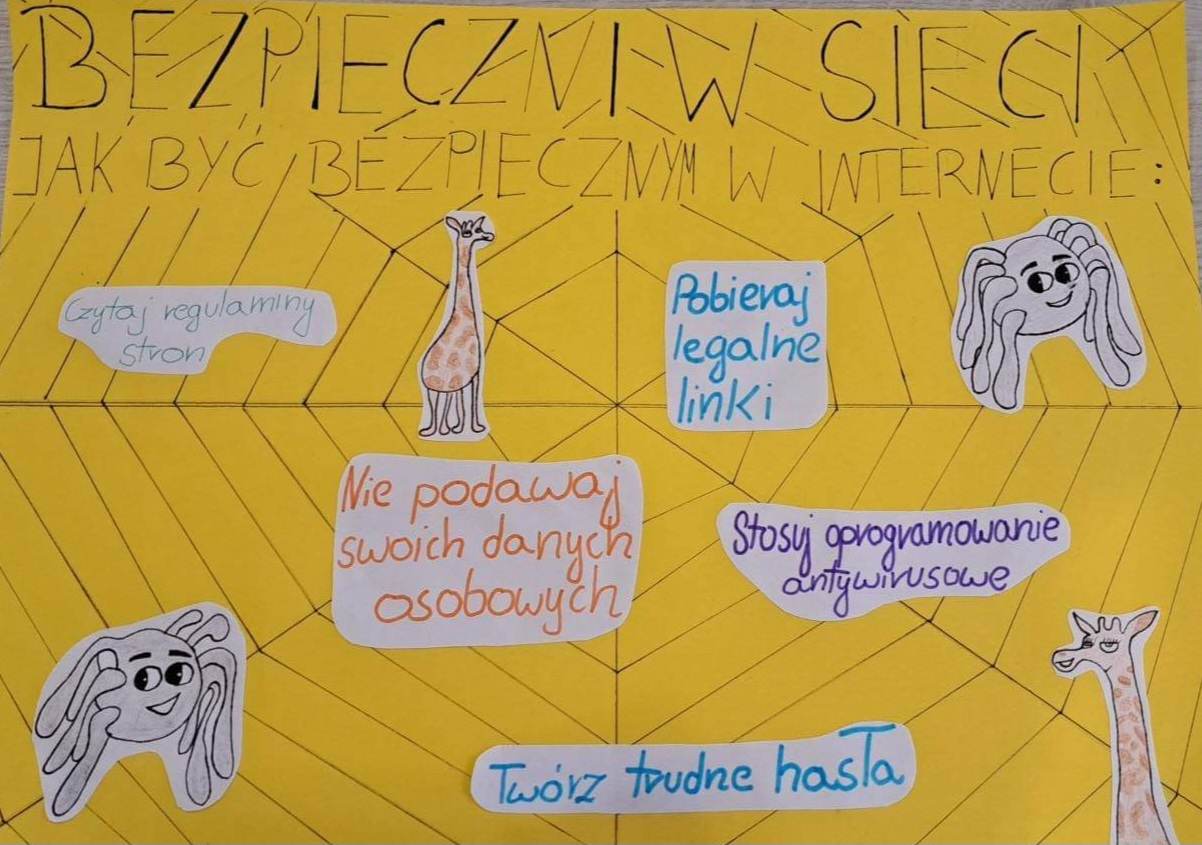 BEZPIECZNI W SIECI
JAK BYĆ BEZPIECZNYM W INTERNECIE:
Czytaj regulaminy
stron
Pobieraj
legalne
linki
Nie podawaj
swoich danych
osobowych
Stosuj oprogramowanie
antywirusowe
Twórz trudne hasła